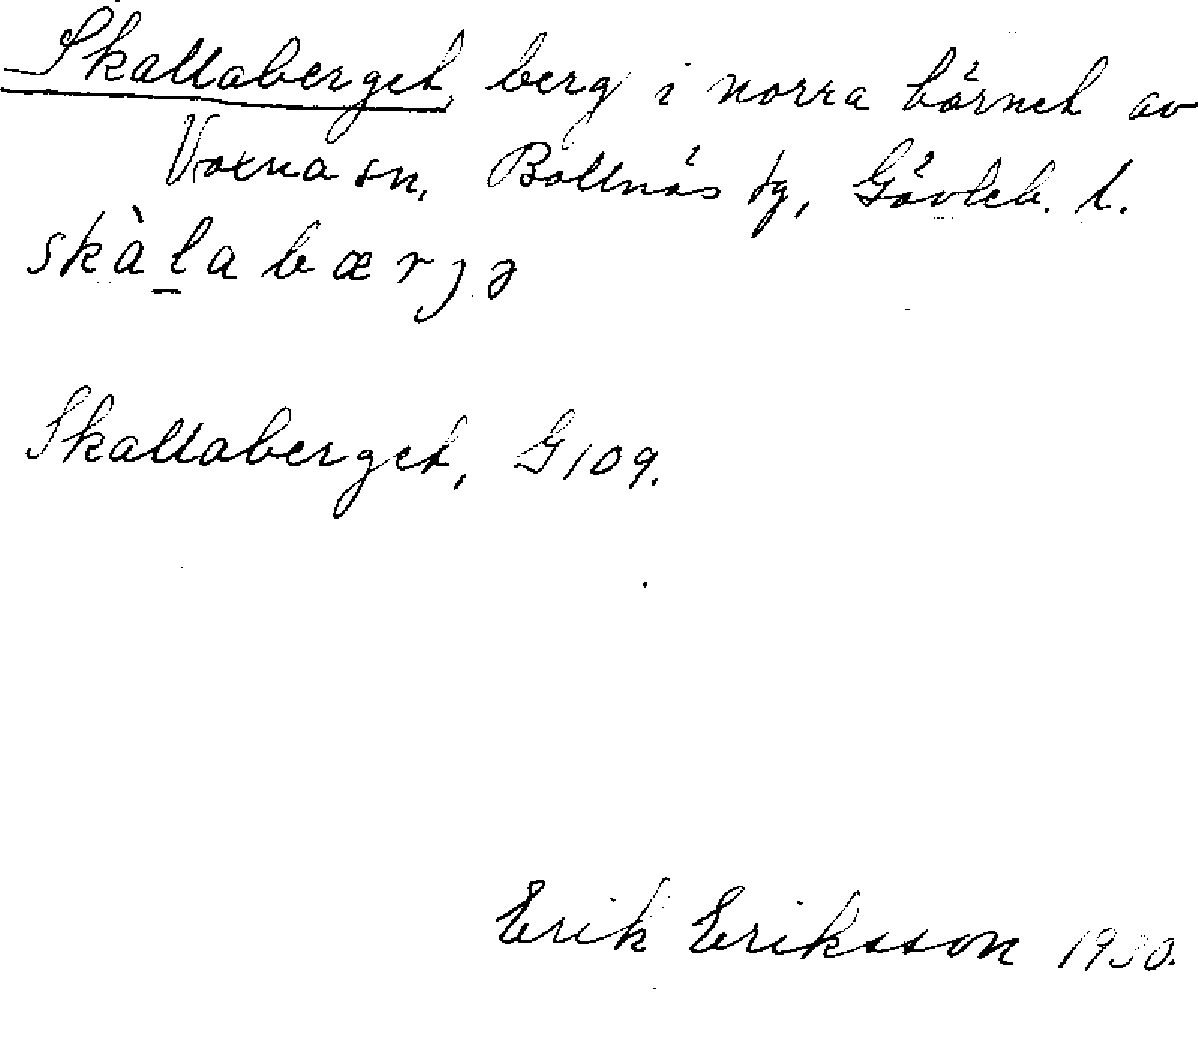 Skallaberget, berg i norra hörnet av
Voxna sn, Bollnäs tg, Gävleb. l.
skàl̲abærjə
Skallaberget, G109.
Erik Eriksson 1930.